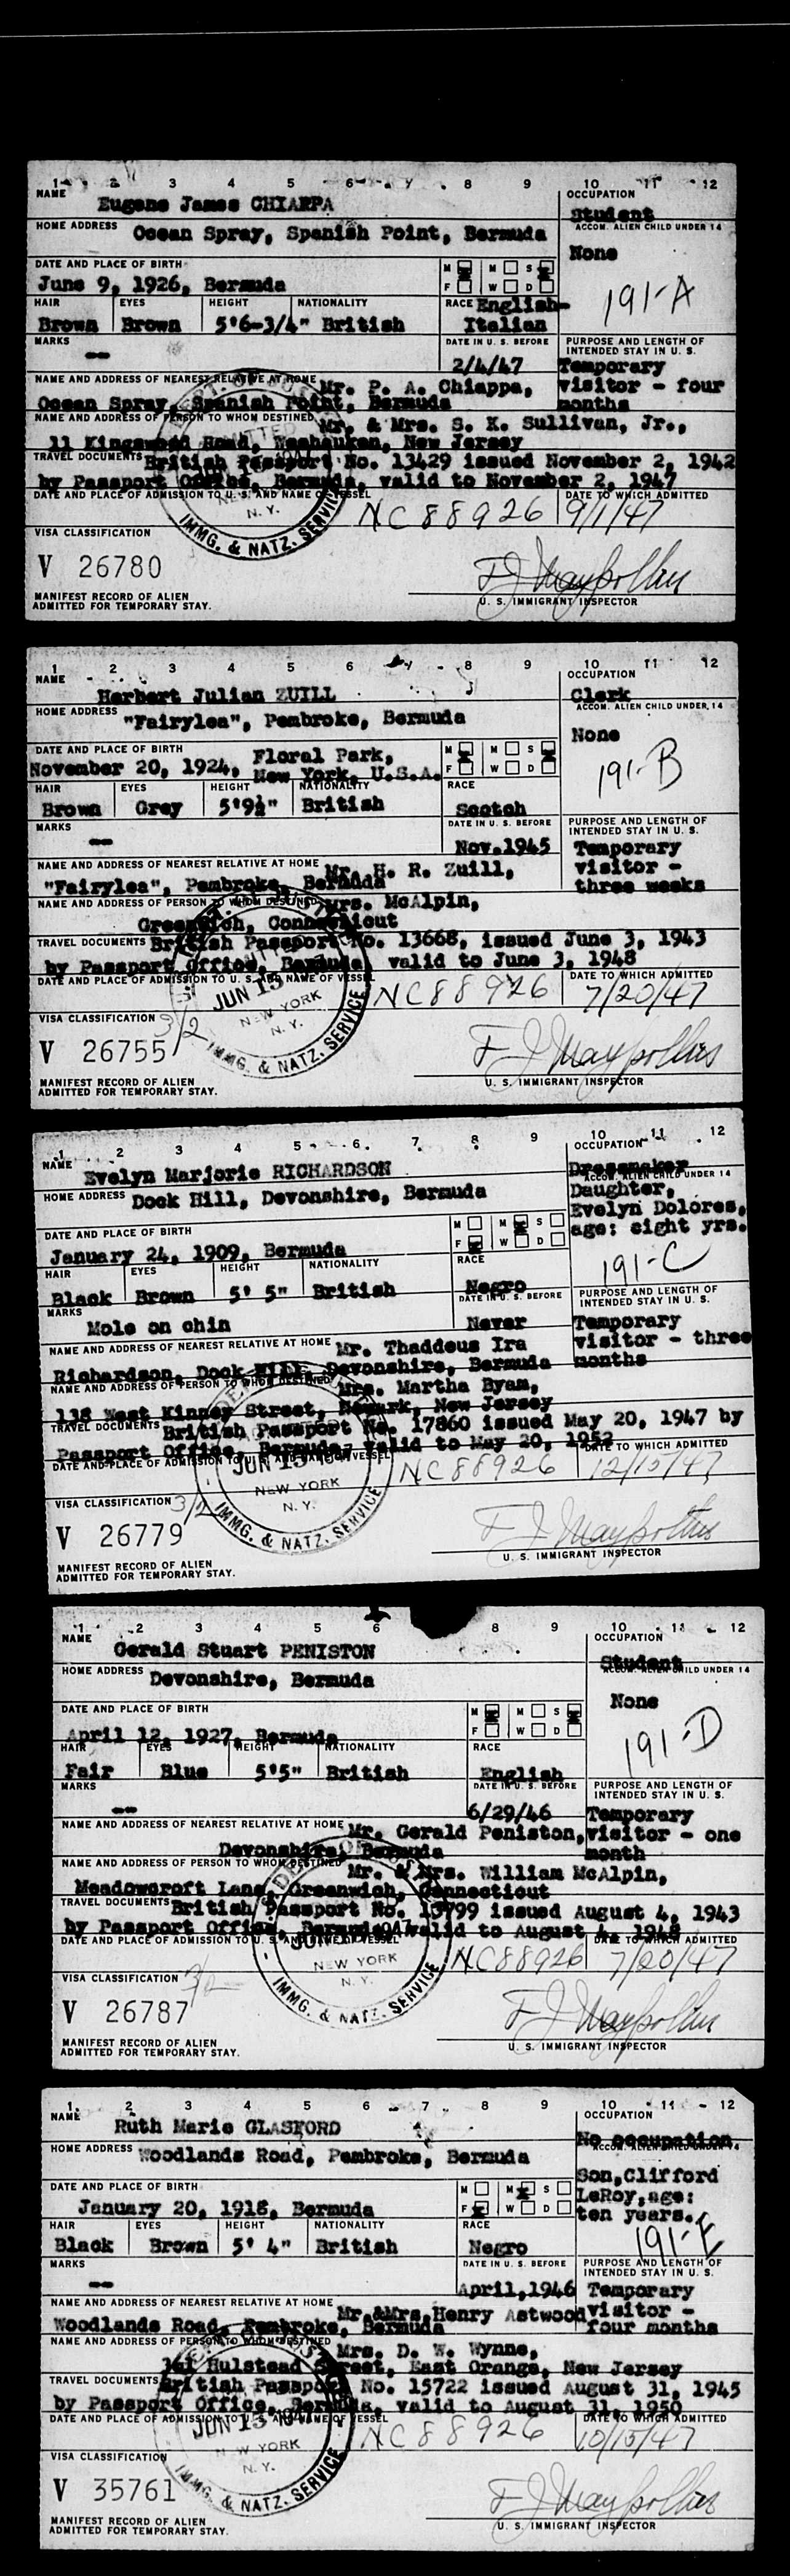 1 2 3 4 5 6 7 8 9 10 11 12
NAME Eugene James CHIAPPA
OCCUPATION Student
HOME ADDRESS Ocean Spray, Spanish Point, Bermuda
ACCOM. ALIEN CHILD UNDER 14
None
DATE AND PLACE OF BIRTH M M S
June 9, 1926, Bermuda F W D
191-A
HAIR EYES HEIGHT NATIONALITY RACE English-
Brown Brown 5'6-3/4" British Italian
MARKS DATE IN U. S. BEFORE PURPOSE AND LENGTH OF INTENDED STAY IN U. S.
-- 2/4/47 Temporary
NAME AND ADDRESS OF NEAREST RELATIVE AT HOME Mr. P. A. Chiappa, visitor - four
Ocean Spray, Spanish Point, Bermuda months
NAME AND ADDRESS OF PERSON TO WHOM DESTINED Mr. & Mrs. S. K. Sullivan, Jr.,
11 Kingswood Road, Weehauken, New Jersey
TRAVEL DOCUMENTS British Passport No. 13429 issued November 2, 1942
by Passport Office, Bermuda, valid to November 2, 1947
DATE AND PLACE OF ADMISSION TO U. S. AND NAME OF VESSEL DATE TO WHICH ADMITTED
NC88926 9/1/47
N. Y.
IMMG. & NATZ. SERVICE
VISA CLASSIFICATION
V 26780
MANIFEST RECORD OF ALIEN
ADMITTED FOR TEMPORARY STAY.
U. S. IMMIGRANT INSPECTOR
1 2 3 4 5 6 7 8 9 10 11 12
NAME Herbert Julian ZUILL
OCCUPATION Clerk
HOME ADDRESS "Fairylea", Pembroke, Bermuda
ACCOM. ALIEN CHILD UNDER 14
None
DATE AND PLACE OF BIRTH Floral Park, M M S
November 20, 1924, New York, U.S.A. F W D
191-B
HAIR EYES HEIGHT NATIONALITY RACE
Brown Grey 5'9½" British Scotch
MARKS DATE IN U. S. BEFORE PURPOSE AND LENGTH OF INTENDED STAY IN U. S.
-- Nov.1945 Temporary
NAME AND ADDRESS OF NEAREST RELATIVE AT HOME Mr. H. R. Zuill, visitor -
"Fairylea", Pembroke, Bermuda three weeks
NAME AND ADDRESS OF PERSON TO WHOM DESTINED Mrs. McAlpin,
Greenwich, Connecticut
TRAVEL DOCUMENTS British Passport No. 13668, issued June 3, 1943
by Passport Office, Bermuda, valid to June 3, 1948
DATE AND PLACE OF ADMISSION TO U. S. AND NAME OF VESSEL DATE TO WHICH ADMITTED
NC88926 7/20/47
JUN 15
NEW YORK
N. Y.
IMMG. & NATZ. SERVICE
VISA CLASSIFICATION 3/2
V 26755
MANIFEST RECORD OF ALIEN
ADMITTED FOR TEMPORARY STAY.
U. S. IMMIGRANT INSPECTOR
1 2 3 4 5 6 7 8 9 10 11 12
NAME Evelyn Marjorie RICHARDSON
OCCUPATION Dressmaker
HOME ADDRESS Dock Hill, Devonshire, Bermuda
ACCOM. ALIEN CHILD UNDER 14
Daughter,
Evelyn Dolores,
age: eight yrs.
DATE AND PLACE OF BIRTH M M S
January 24, 1909, Bermuda F W D
191-C
HAIR EYES HEIGHT NATIONALITY RACE
Black Brown 5' 5" British Negro
MARKS DATE IN U. S. BEFORE PURPOSE AND LENGTH OF INTENDED STAY IN U. S.
Mole on chin Never Temporary
NAME AND ADDRESS OF NEAREST RELATIVE AT HOME Mr. Thaddeus Ira visitor - three
Richardson, Dock Hill, Devonshire, Bermuda months
NAME AND ADDRESS OF PERSON TO WHOM DESTINED Mrs. Martha Byam,
138 West Kinney Street, Newark, New Jersey
TRAVEL DOCUMENTS British Passport No. 17860 issued May 20, 1947 by
Passport Office, Bermuda, valid to May 20, 1952
DATE AND PLACE OF ADMISSION TO U. S. AND NAME OF VESSEL DATE TO WHICH ADMITTED
NC88926 12/15/47
JUN 15
NEW YORK
N. Y.
IMMG. & NATZ. SERVICE
VISA CLASSIFICATION 3/2
V 26779
MANIFEST RECORD OF ALIEN
ADMITTED FOR TEMPORARY STAY.
U. S. IMMIGRANT INSPECTOR
1 2 3 4 5 6 8 9 10 11 12
NAME Gerald Stuart PENISTON
OCCUPATION Student
HOME ADDRESS Devonshire, Bermuda
ACCOM. ALIEN CHILD UNDER 14
None
DATE AND PLACE OF BIRTH M M S
April 12, 1927, Bermuda F W D
191-D
HAIR EYES HEIGHT NATIONALITY RACE
Fair Blue 5'5" British English
MARKS DATE IN U. S. BEFORE PURPOSE AND LENGTH OF INTENDED STAY IN U. S.
-- 6/29/46 Temporary
NAME AND ADDRESS OF NEAREST RELATIVE AT HOME Mr. Gerald Peniston, visitor - one
Devonshire, Bermuda month
NAME AND ADDRESS OF PERSON TO WHOM DESTINED Mr. & Mrs. William McAlpin,
Meadowcroft Lane, Greenwich, Connecticut
TRAVEL DOCUMENTS British Passport No. 13799 issued August 4, 1943
by Passport Office, Bermuda, valid to August 4, 1948
DATE AND PLACE OF ADMISSION TO U. S. AND NAME OF VESSEL DATE TO WHICH ADMITTED
NC88926 7/20/47
JUN
NEW YORK
N. Y.
IMMG. & NATZ. SERVICE
VISA CLASSIFICATION
V 26787
MANIFEST RECORD OF ALIEN
ADMITTED FOR TEMPORARY STAY.
U. S. IMMIGRANT INSPECTOR
1 2 3 4 5 6 7 8 9 10 11 12
NAME Ruth Marie GLASFORD
OCCUPATION No occupation
HOME ADDRESS Woodlands Road, Pembroke, Bermuda
ACCOM. ALIEN CHILD UNDER 14
Son,Clifford
LeRoy,age:
ten years.
DATE AND PLACE OF BIRTH M M S
January 20, 1918, Bermuda F W D
191-E
HAIR EYES HEIGHT NATIONALITY RACE
Black Brown 5' 4" British Negro
MARKS DATE IN U. S. BEFORE PURPOSE AND LENGTH OF INTENDED STAY IN U. S.
-- April,1946 Temporary
NAME AND ADDRESS OF NEAREST RELATIVE AT HOME Mr.&Mrs.Henry Astwood visitor -
Woodlands Road, Pembroke, Bermuda four months
NAME AND ADDRESS OF PERSON TO WHOM DESTINED Mrs. D. W. Wynne,
Hulstead Street, East Orange, New Jersey
TRAVEL DOCUMENTS British Passport No. 15722 issued August 31, 1945
by Passport Office, Bermuda, valid to August 31, 1950
DATE AND PLACE OF ADMISSION TO U. S. AND NAME OF VESSEL DATE TO WHICH ADMITTED
NC88926 10/15/47
JUN 15 194
NEW YORK
N. Y.
IMMG. & NATZ. SERVICE
VISA CLASSIFICATION
V 35761
MANIFEST RECORD OF ALIEN
ADMITTED FOR TEMPORARY STAY.
U. S. IMMIGRANT INSPECTOR